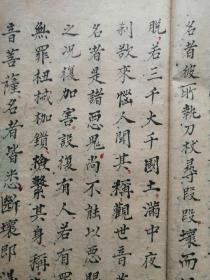 名者彼所執刀杖尋段段壞而
脫若三千大千國土滿中夜
刹欲來惱人聞其稱觀世音
名者是諸惡鬼尚不能以惡眼
之况復加害設復有人若有罪
無罪杻械枷鎖撿繫其身稱
音菩薩名者皆悉斷壞即